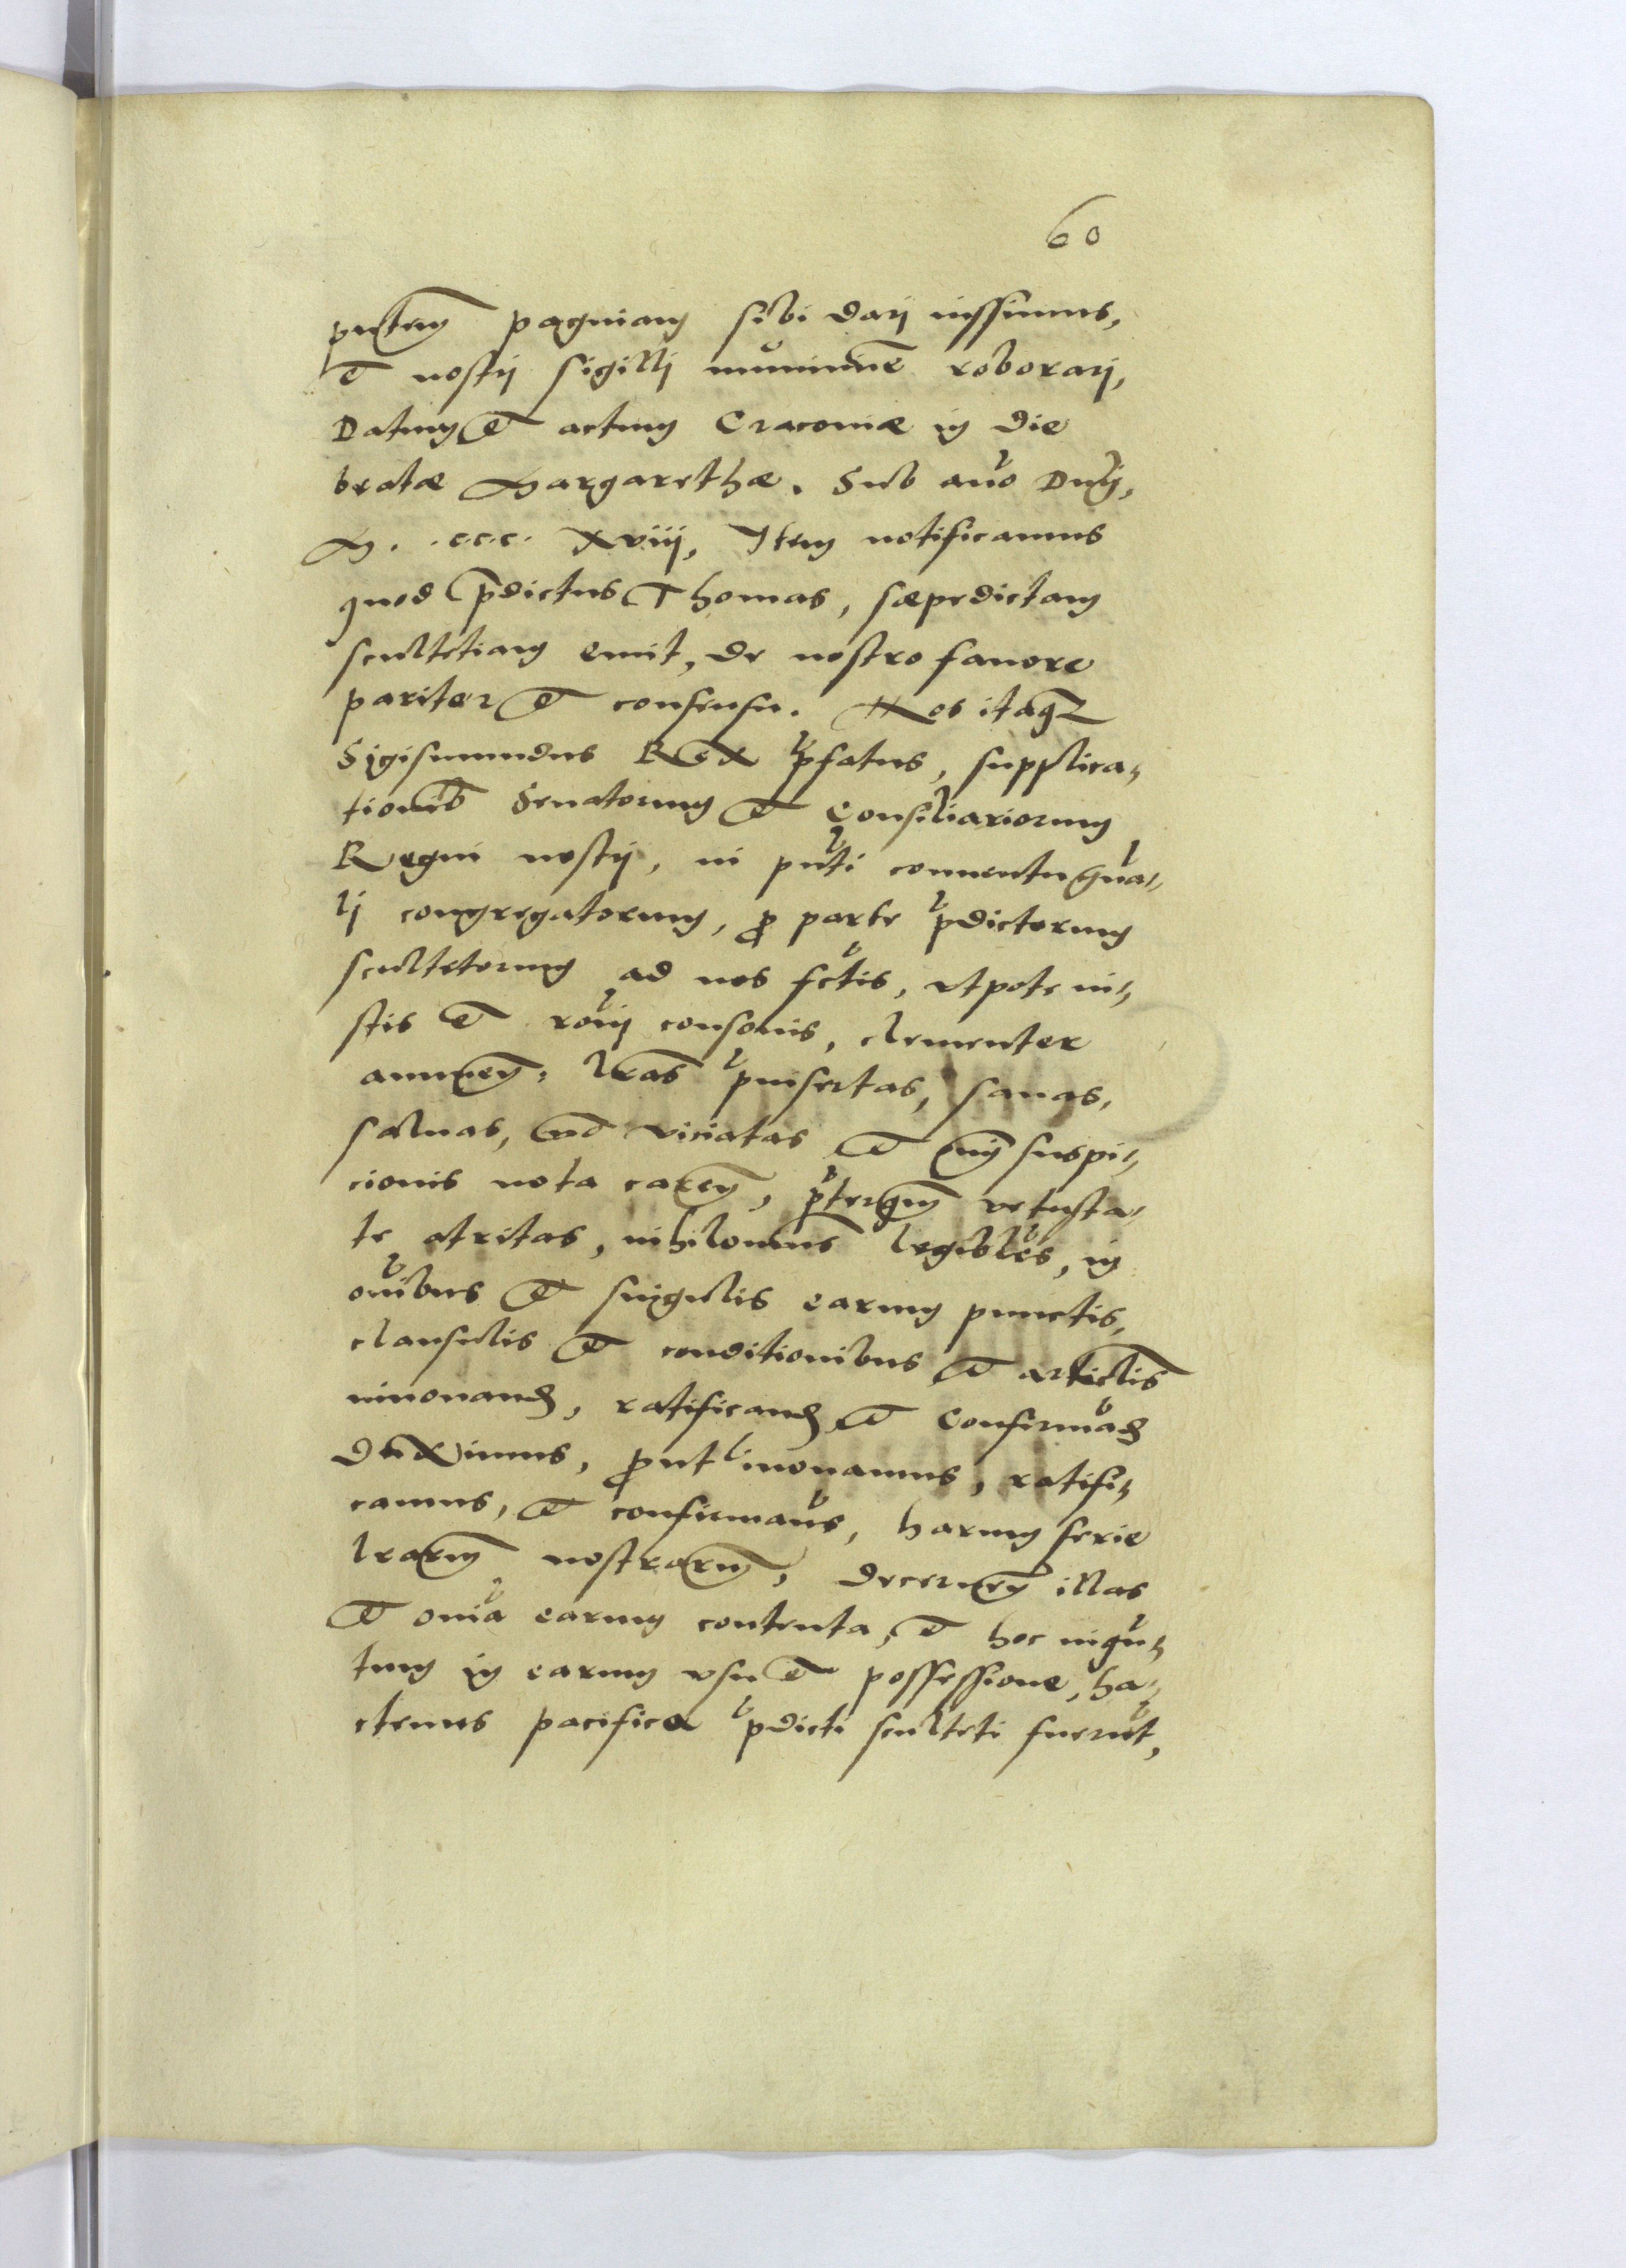 60
pñtem paginam sibi darj iussimus,
et nostrj sigillj munimine roborarj,
Datum et actum Cracouiæ in die
beatæ Margarethæ. Sub año Dñj,
M. .c.c.c. Xviij, Item notificamus
quod p̄dictus Thomas, sæpedictam
scultetiam emit, de nostro fauore
pariter et consensu. Nos itaq3
Sigismundus Rex p̃fatus, supplica-
tionib Senatorum et Consiliariorum
Regni nostrj, in pñti conuentu gñа-
lj congregatorum, ꝓ parte p̃dictorum
scultetorum ad nos fctis, vtpote iu-
stis et rõnj consonis, clementer
annuen: lrãs p̃insertas, sanas,
saluas, nõ viciatas et om̃j suspi-
cionis nota caren, p̃terquam vetusta-
te atritas, nihilominus legibles, in
oĩbus et singulis earum punctis,
clausulis et conditionibus et articlis
innouand, ratificand et Confirmãd
duximus, ꝓut innouamus, ratifi-
camus, et confirmaũs, harum serie
lrarum nostrarum, decernen illas
et oniã earum contenta, et hoc inqũ-
tum in earum vsu et possessione, ha-
ctenus pacifica p̃dicti sculteti fuerũt,